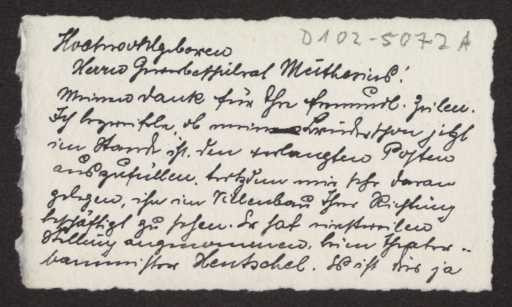 D102-5072 A
Hochwohlgeboren
Herrn Muthesius!
Meinen Dank für Ihre freundl. Zeilen.
Ich bezweifele, ob mein Bruder schon jetzt
im Stande ist, den verlangten Posten
auszufüllen, trotzdem mir sehr daran
gelegen, ihn im Villenbau Ihrer Richtung
beschäftigt zu sehen. Er hat einstweilen
Stellung angenommen, beim Theater-
baumeister Hentschel. Es ist dies ja